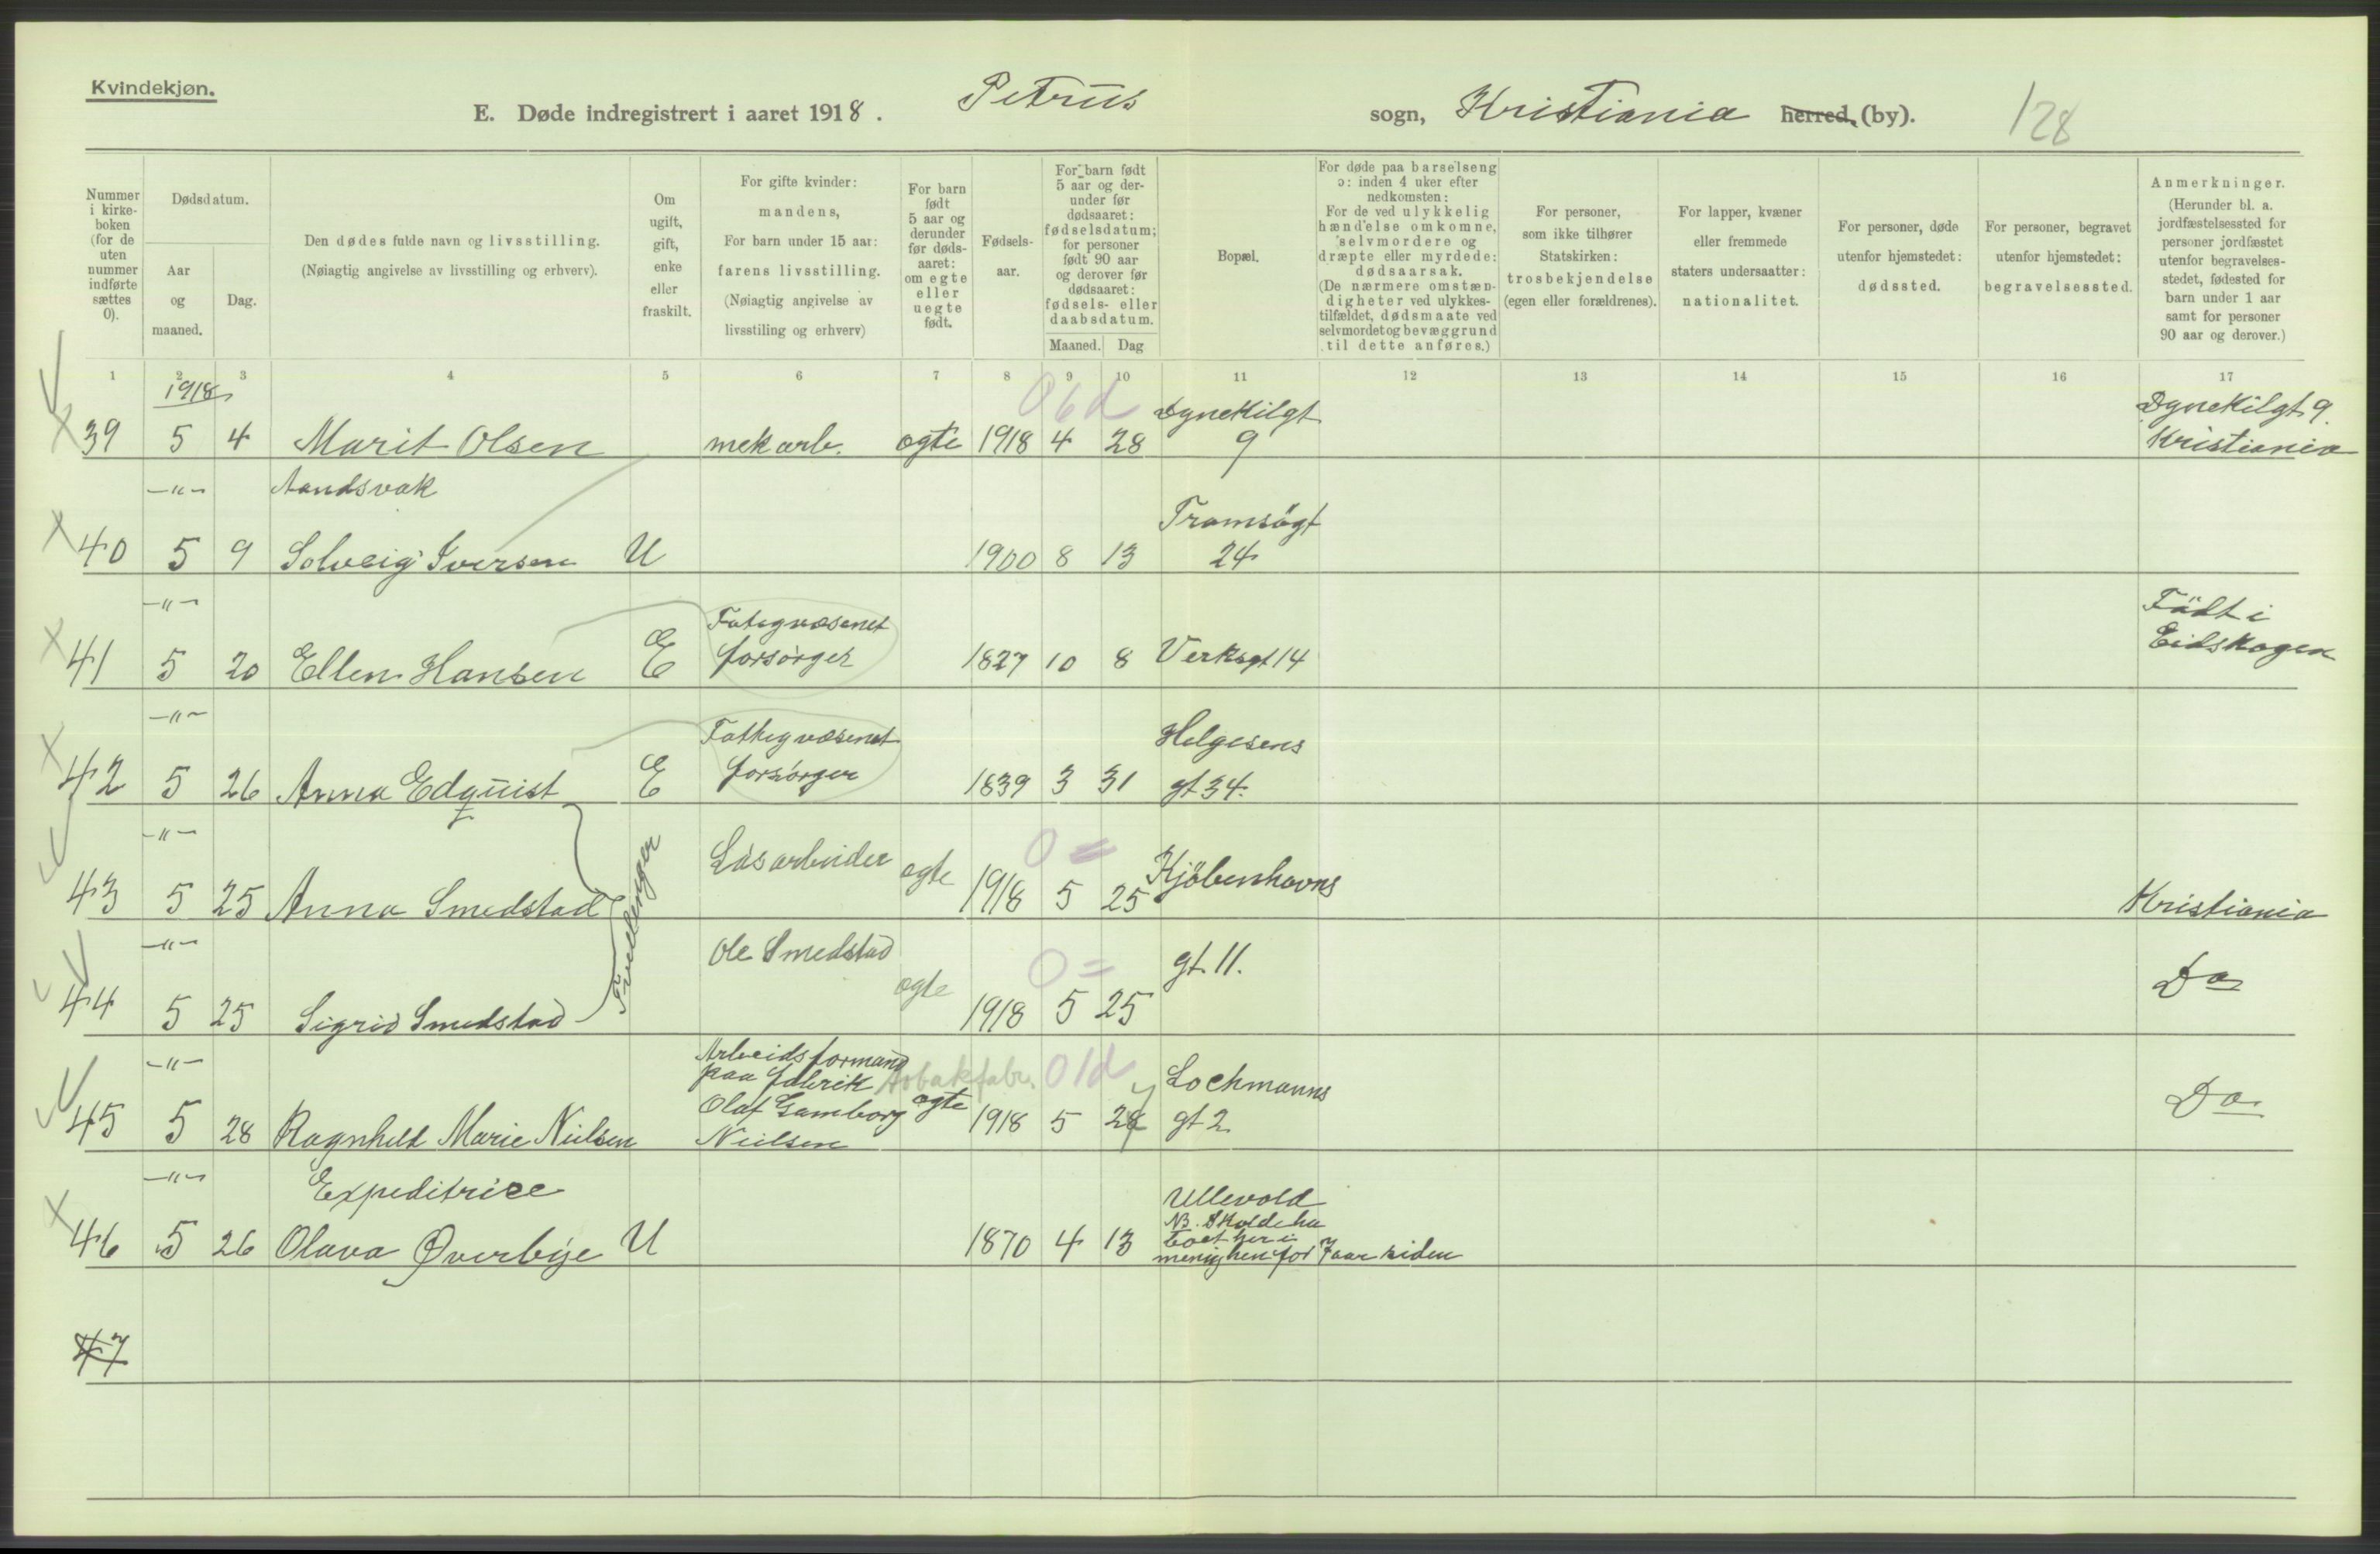 Kvindekjøn.
E. Døde indregistrert i aaret 1918. Petrus sogn, Kristiania herred, (by). 128
Nummer i kirke-boken (for de uten nummer indførte sættes 0).
Dødsdatum.
Aar og maaned.
Dag.
Den dødes fulde navn og livsstilling.
(Nøiagtig angivelse av livsstilling og erhverv).
Om ugift, gift, enke eller fraskilt.
For gifte kvinder: mandens,
For barn under 15 aar: farens livsstilling.
(Nøiagtig angivelse av livsstiling og erhverv)
For barn født 5 aar og derunder før døds-aaret: om egte eller uegte født.
Fødsels-aar.
For barn født 5 aar og der-under før dødsaaret: fødselsdatum; for personer født 90 aar og derover før dødsaaret: fødsels- eller daabsdatum.
Maaned. Dag
Bopæl.
For døde paa barselseng ɔ: inden 4 uker efter nedkomsten:
For de ved ulykkelig hændelse omkomne, selvmordere og dræpte eller myrdede: dødsaarsak.
(De nærmere omstæn-digheter ved ulykkes-tilfældet, dødsmaate ved selvmordet og bevæggrund til dette anføres.)
For personer, som ikke tilhører Statskirken: trosbekjendelse (egen eller forældrenes).
For lapper, kvæner eller fremmede staters undersaatter: nationalitet.
For personer, døde utenfor hjemstedet: dødssted.
For personer, begravet utenfor hjemstedet: begravelsessted.
Anmerkninger.
(Herunder bl. a. jordfæstelsessted for personer jordfæstet utenfor begravelses-stedet, fødested for barn under 1 aar samt for personer 90 aar og derover.)
1 2 3 4 5 6 7 8 9 10 11 12 13 14 15 16 17
1918
0 6 d Dynekilgt Dynekilgt 9.
39 5 4 Marit Olsen mek arb. egte 1918 4 28 9 Kristiania
—"— Aandsvak
Tromsögt
40 5 9 Solveig Iversen U 1900 8 13 24
—"—
Fatigvæsenet Födt i
41 5 20 Ellen Hansen E forsörger 1827 10 8 Verksgt 14 Eidskogen
—"—
Fattigvæsenet Helgesens
42 5 26 Anna Edquist E forsörger 1839 3 31 gt 34.
—"—
Låsarbeider 0 =
43 5 25 Anna Smedstad egte 1918 5 25 Kjöbenhavns Kristiania
Tvillinger
—"—
Ole Smedstad 0 = gt. 11. Do
44 5 25 Sigrid Smedstad egte 1918 5 25
—"— Arbeidsformand
paa fabrik 0 1 d Lochmanns
45 5 28 Ragnhild Marie Nielsen Olaf Gamborg egte 1918 5 28 7 gt 2 Do
Nielsen
—"— Expeditrice
Ullevold
46 5 26 Olava Øverbye U 1870 4 13 NB. Skolde ha
boet her i
menigheu for 7 aar siden
47